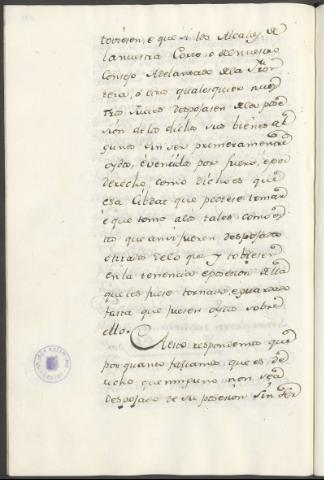 toviesen, e que si los Alcaldes de
la nuestra Corte o del nuestro
Consejo Adelantado de la Fron
tera, o otro qualesquier nues
tros Jueces desposasen de la pose
sión de los dichos sus bienes al
gunos sin ser primeramente
oydos, e vencidos por fuero, e por
derecho, como dicho es que
esa Cibdat que podiese tomar
e que tomo a los tales como es
to que ansi fueren desposado
e tirado de lo que y tobiesen
en la tenencia e posesion della
que les fuese tornado, e guardado
fasta que fuesen oydos sobre
ello.
A esto respondemos que
por quanto fallamos que es de
recho que ninguno non sea
desposado de su posesion sin ser